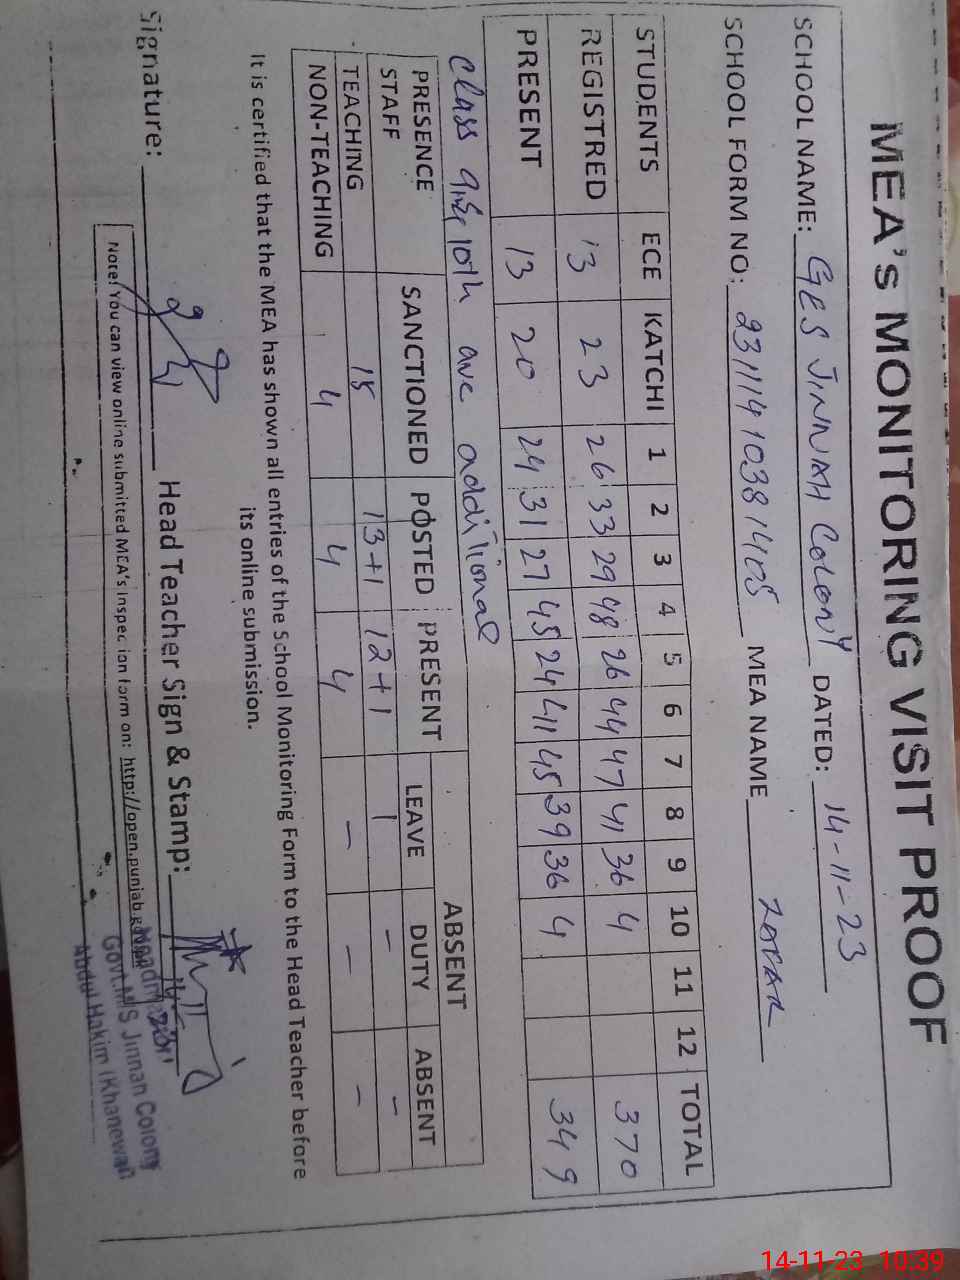 MEA's MONITORING VISIT PROOF
SCHOOL NAME: GES JINNAH COLONY DATED: 14-11-23
SCHOOL FORM NO: MEA NAME
STUDENTS ECE KATCHI 1 2 3 4 5 6 7 8 9 10 11 12 TOTAL
REGISTRED 13 23 26 33 29 48 26 44 47 41 36 4 370
PRESENT 13 20 24 31 27 45 24 41 45 39 36 4 349
class 9th & 10th are additional
PRESENCE STAFF SANCTIONED POSTED PRESENT ABSENT
LEAVE DUTY ABSENT
TEACHING 15 13+1 12+1 1 - -
NON-TEACHING 4 4 4 - - -
It is certified that the MEA has shown all entries of the School Monitoring Form to the Head Teacher before
its online submission.
Signature: Head Teacher Sign & Stamp:
Note: You can view online submitted MEA's inspection form on: http://open.punjab.
Headmaster
Govt.M/S Jinnah Colony
Abdul Hakim (Khanewal)
14-11-23 10:39